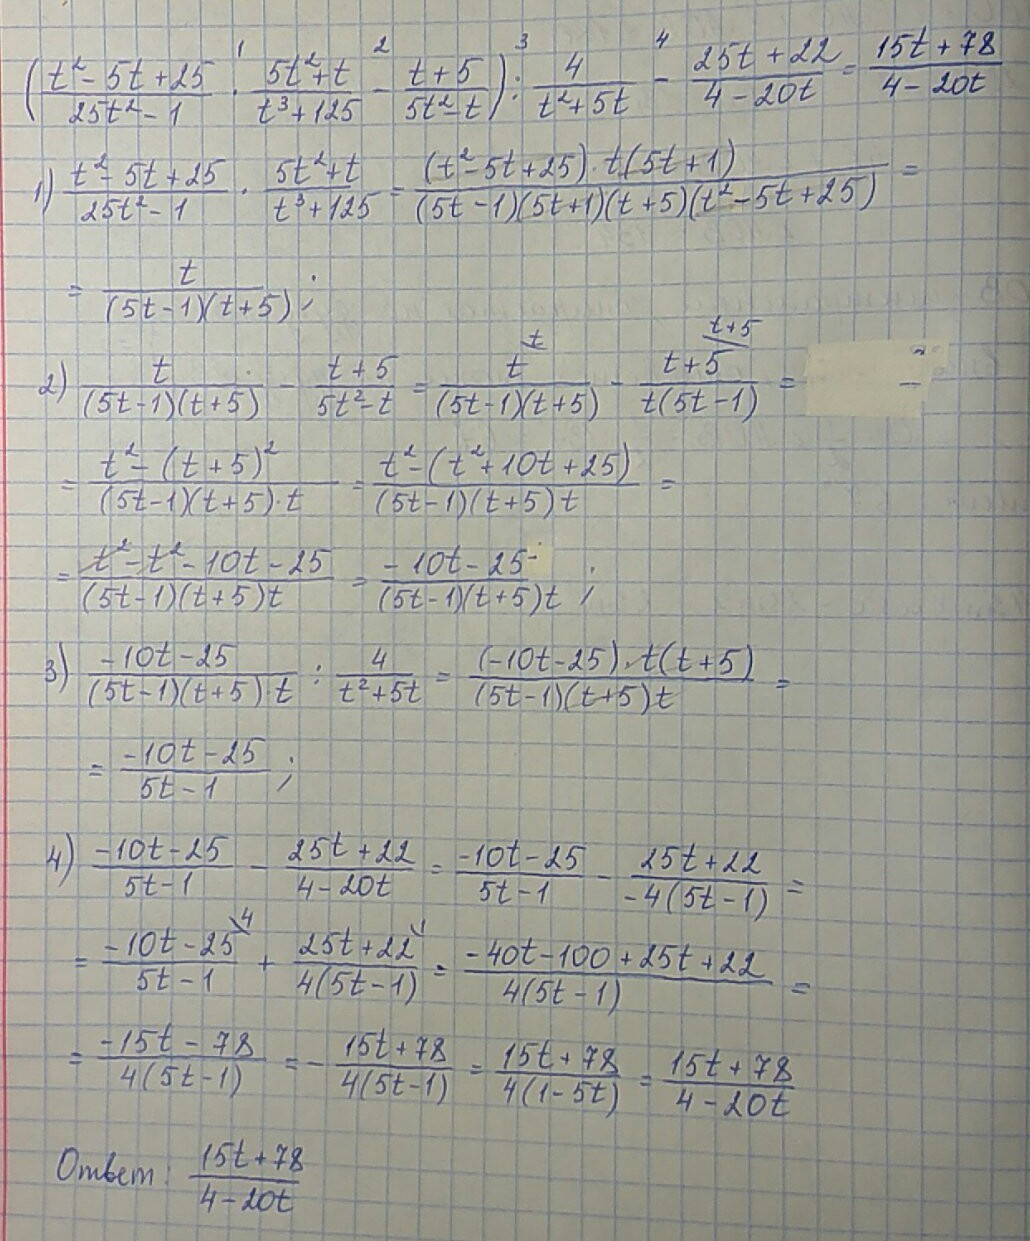 (t²-5t+25/25t²-1 ¹· 5t²+t/t³+125 ²- t+5/5t²-t) ³: 4/t²+5t ⁴- 25t+22/4-20t = 15t+78/4-20t
1) t²-5t+25/25t²-1 · 5t²+t/t³+125 = (t²-5t+25)·t(5t+1)/(5t-1)(5t+1)(t+5)(t²-5t+25) =
= t/(5t-1)(t+5);
2) t/(5t-1)(t+5) - t+5/5t²-t = t\t/(5t-1)(t+5) - t+5\t+5/t(5t-1) =
= t²-(t+5)²/(5t-1)(t+5)·t = t²-(t²+10t+25)/(5t-1)(t+5)t =
= t²-t²-10t-25/(5t-1)(t+5)t = -10t-25/(5t-1)(t+5)t;
3) -10t-25/(5t-1)(t+5)·t : 4/t²+5t = (-10t-25)·t(t+5)/(5t-1)(t+5)t =
= -10t-25/5t-1;
4) -10t-25/5t-1 - 25t+22/4-20t = -10t-25/5t-1 - 25t+22/-4(5t-1) =
= -10t-25\4/5t-1 + 25t+22\1/4(5t-1) = -40t-100+25t+22/4(5t-1) =
= -15t-78/4(5t-1) = - 15t+78/4(5t-1) = 15t+78/4(1-5t) = 15t+78/4-20t
Ответ: 15t+78/4-20t